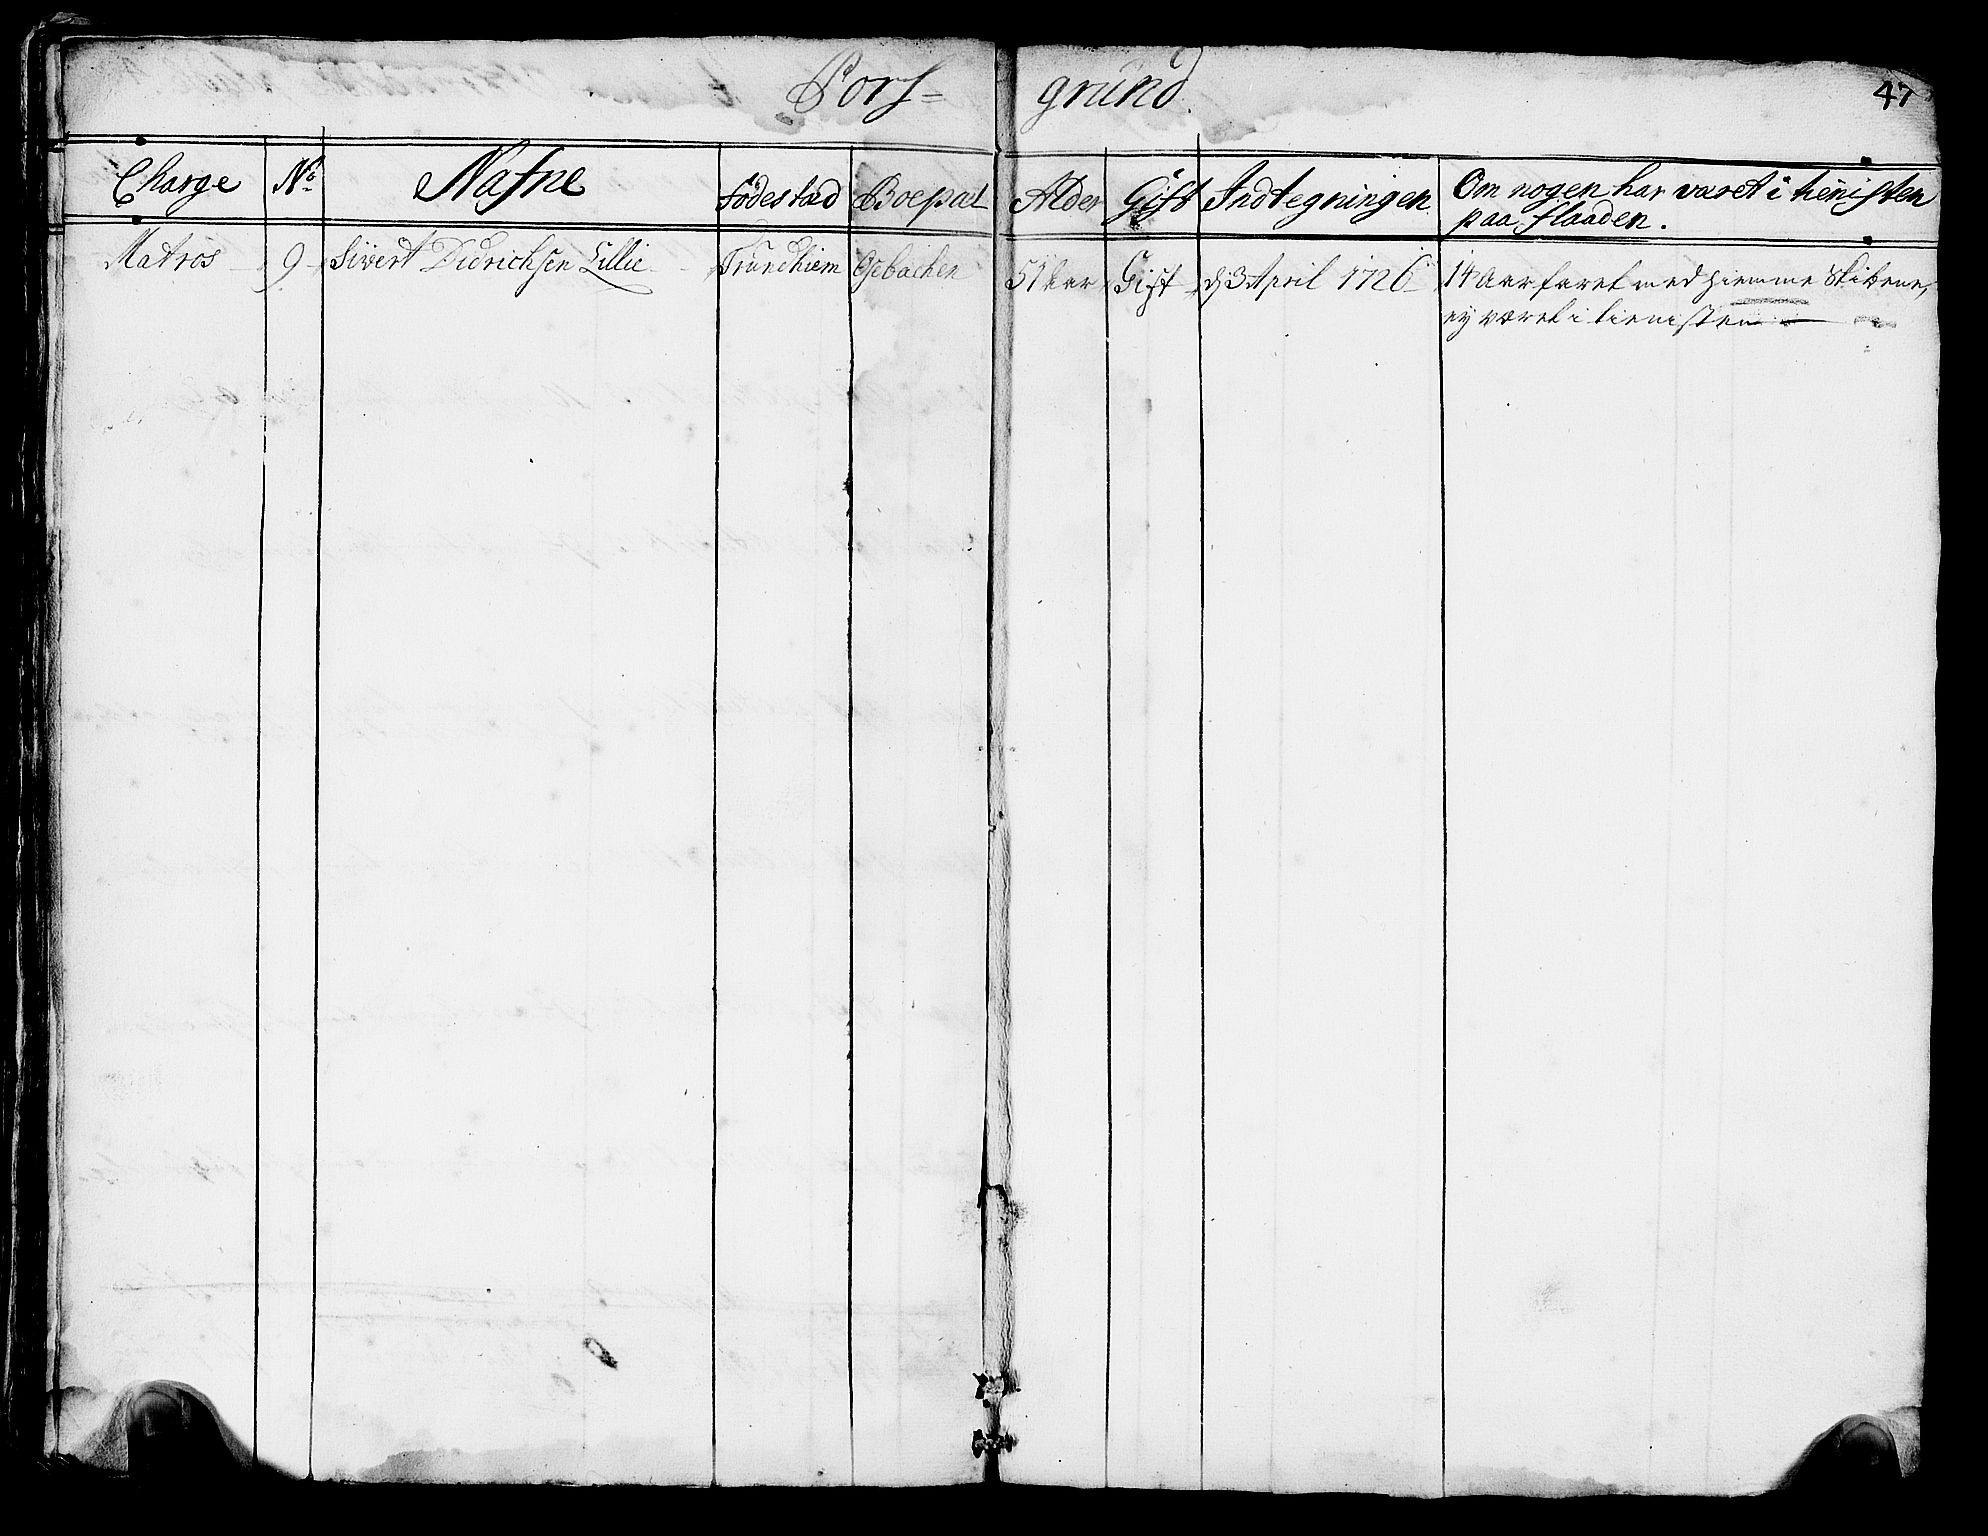 Pors= grund.
47
Charge No Nafne födestæd Boepæl Alder Gift Indtegningen Om nogen har været i tienisten
paa flaaden.
Matros 9 Sivert Didrichsen Lillie Trundhiem Osebachen 51 Aar Gift d 3 April 1726 14 Aar faret med hiemme Skibene,
ey været i tienisten